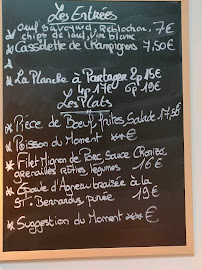 Les Entrées
* Oeuf Savoyard, Reblochon, 7€
chips de lard, Vin blanc
* Cassolette de Champignons 7,50€
* La Planche à Partager 2p 15€
4p 17€ 6p 19€
Les Plats
* Pièce de Boeuf, frites, Salade 17,50€
* Poisson du Moment ***€
* Filet Mignon de Porc, Sauce
grenailles rôties, légumes 16€
* Epaule d'Agneau braisée à la
ST. Bernardus, purée 19€
* Suggestion du Moment ***€